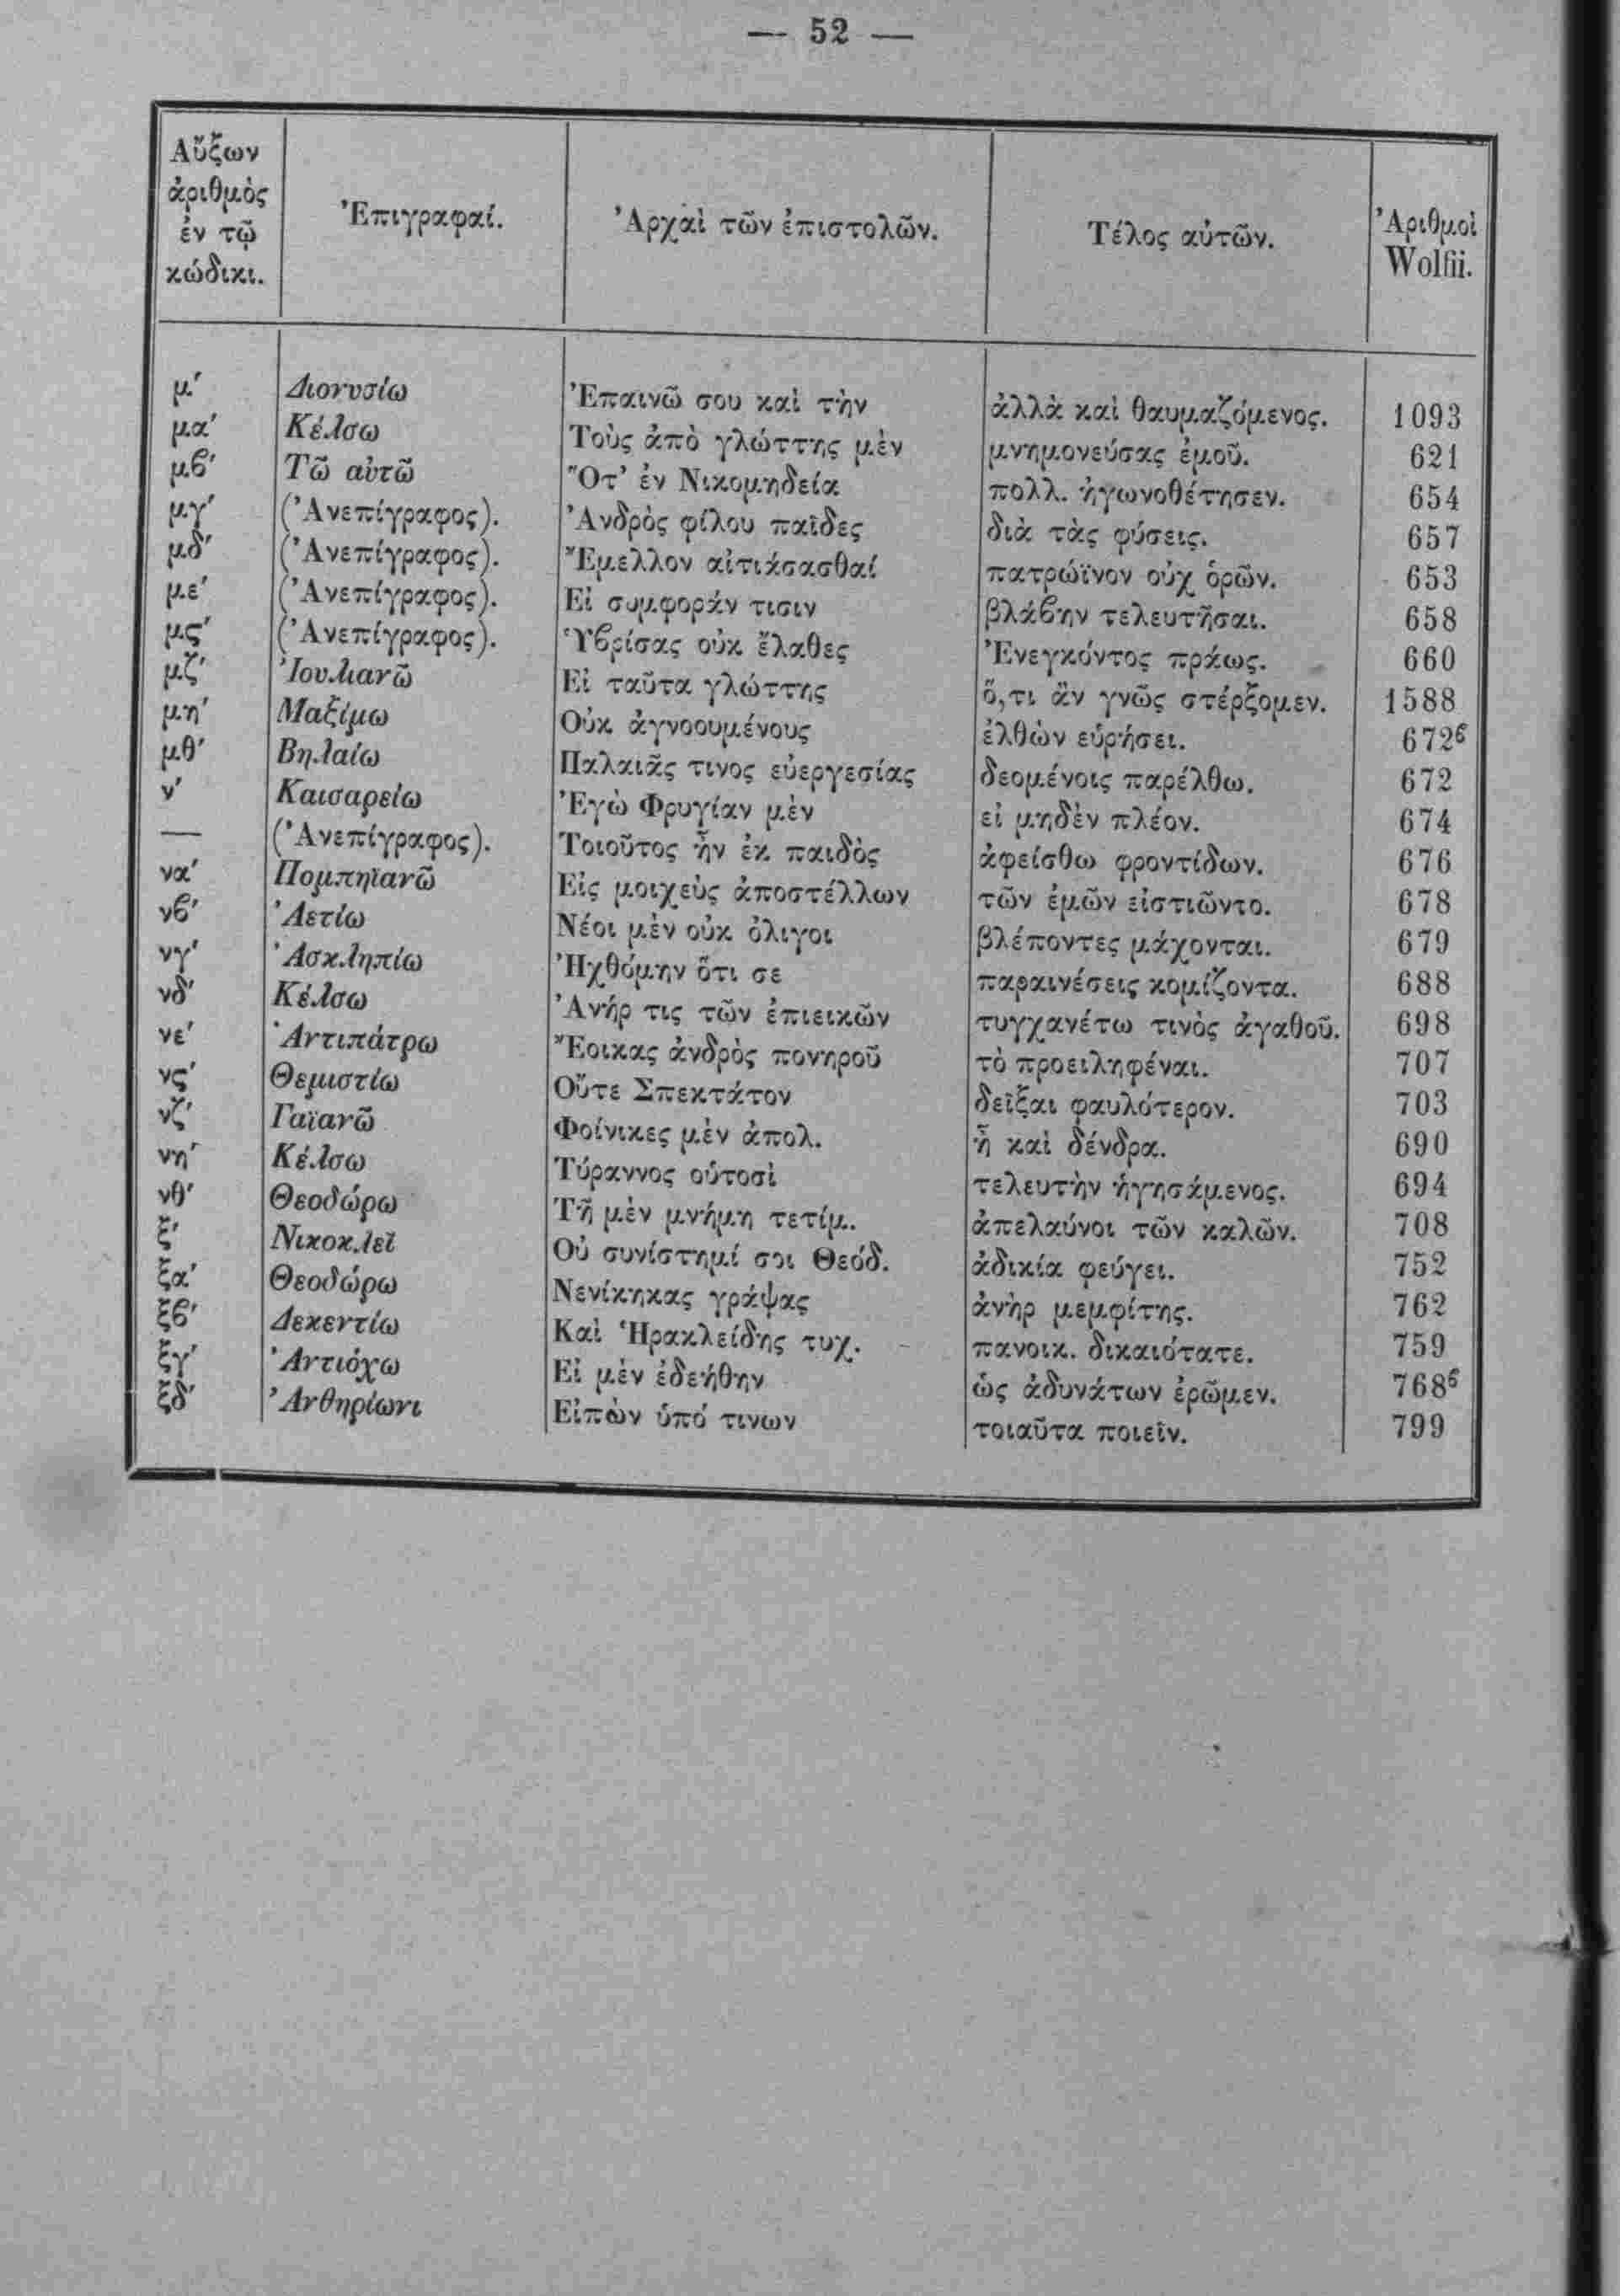 — 52 —
Αὔξων ἀριθμὸς ἐν τῷ κώδικι. Ἐπιγραφαί. Ἀρχαὶ τῶν ἐπιστολῶν. Τέλος αὐτῶν. Ἀριθμοὶ Wolfii.
μ′ Διονυσίω Ἐπαινῶ σου καὶ τὴν ἀλλὰ καὶ θαυμαζόμενος. 1093
μα′ Κέλσω Τοὺς ἀπὸ γλώττης μὲν μνημονεύσας ἐμοῦ. 621
μϐ′ Τῶ αὐτῶ Ὅτ’ ἐν Νικομηδεία πολλ. ἠγωνοθέτησεν. 654
μγ′ (Ἀνεπίγραφος). Ἀνδρὸς φίλου παῖδες διὰ τὰς φύσεις. 657
μδ′ (Ἀνεπίγραφος). Ἔμελλον αἰτιάσασθαί πατρώϊνον οὐχ ὁρῶν. 653
με′ (Ἀνεπίγραφος). Εἰ συμφοράν τισιν βλάϐην τελευτῆσαι. 658
μς′ (Ἀνεπίγραφος). Ὑϐρίσας οὐκ ἔλαθες Ἐνεγκόντος πράως. 660
μζ′ Ἰουλιανῶ Εἰ ταῦτα γλώττης ὅ,τι ἂν γνῶς στέρξομεν. 1588
μη′ Μαξίμω Οὐκ ἀγνοουμένους ἐλθὼν εὑρήσει. 672ϐ
μθ′ Βηλαίω Παλαιᾶς τινος εὐεργεσίας δεομένοις παρέλθω. 672
ν′ Καισαρείω Ἐγὼ Φρυγίαν μὲν εἰ μηδὲν πλέον. 674
— (Ἀνεπίγραφος). Τοιοῦτος ἦν ἐκ παιδὸς ἀφείσθω φροντίδων. 676
να′ Πομπηϊανῶ Εἰς μοιχεὺς ἀποστέλλων τῶν ἐμῶν εἰστιῶντο. 678
νϐ′ Ἀετίω Νέοι μὲν οὐκ ὀλιγοι βλέποντες μάχονται. 679
νγ′ Ἀσκληπίω Ἠχθόμην ὅτι σε παραινέσεις κομίζοντα. 688
νδ′ Κέλσω Ἀνήρ τις τῶν ἐπιεικῶν τυγχανέτω τινὸς ἀγαθοῦ. 698
νε′ Ἀντιπάτρω Ἔοικας ἀνδρὸς πονηροῦ τὸ προειληφέναι. 707
νς′ Θεμιστίω Οὔτε Σπεκτάτον δεῖξαι φαυλότερον. 703
νζ′ Γαϊανῶ Φοίνικες μὲν ἀπολ. ἦ καὶ δένδρα. 690
νη′ Κέλσω Τύραννος οὑτοσὶ τελευτὴν ἡγησάμενος. 694
νθ′ Θεοδώρω Τῆ μὲν μνήμη τετίμ. ἀπελαύνοι τῶν καλῶν. 708
ξ′ Νικοκλεῖ Οὐ συνίστημί σοι Θεόδ. ἀδικία φεύγει. 752
ξα′ Θεοδώρω Νενίκηκας γράψας ἀνὴρ μεμφίτης. 762
ξϐ′ Δεκεντίω Καὶ Ἡρακλείδης τυχ. πανοικ. δικαιότατε. 759
ξγ′ Ἀντιόχω Εἰ μὲν ἐδεήθην ὡς ἀδυνάτων ἐρῶμεν. 768ϐ
ξδ′ Ἀνθηρίωνι Εἰπὼν ὑπό τινων τοιαῦτα ποιεῖν. 799